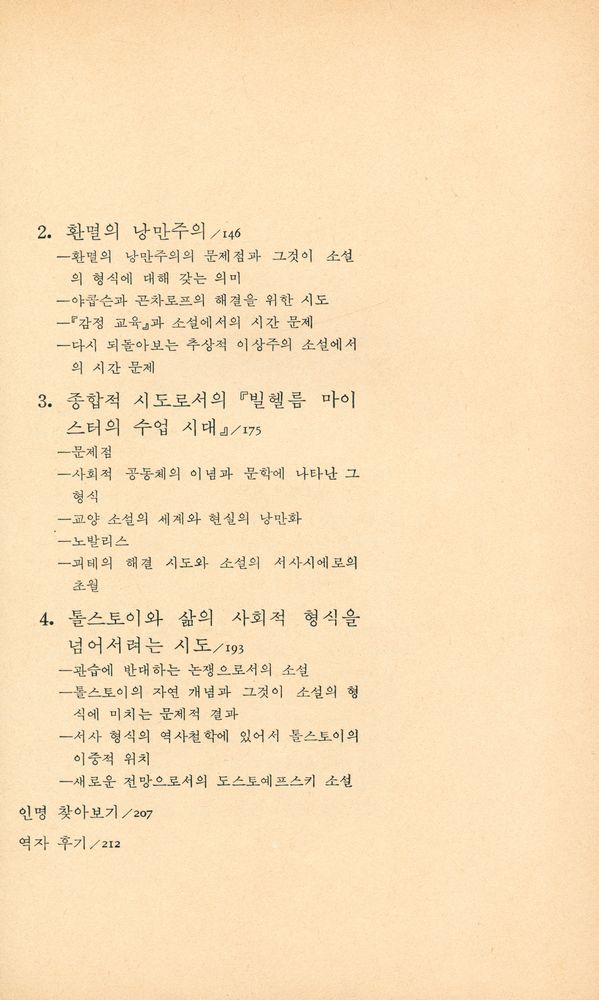 2. 환멸의 낭만주의/146
—환멸의 낭만주의의 문제점과 그것이 소설
의 형식에 대해 갖는 의미
—야콥슨과 곤차로프의 해결을 위한 시도
—『감정 교육』과 소설에서의 시간 문제
—다시 되돌아보는 추상적 이상주의 소설에서
의 시간 문제
3. 종합적 시도로서의 『빌헬름 마이
스터의 수업 시대』/175
—문제점
—사회적 공동체의 이념과 문학에 나타난 그
형식
—교양 소설의 세계와 현실의 낭만화
—노발리스
—괴테의 해결 시도와 소설의 서사시에로의
초월
4. 톨스토이와 삶의 사회적 형식을
넘어서려는 시도/193
—관습에 반대하는 논쟁으로서의 소설
—톨스토이의 자연 개념과 그것이 소설의 형
식에 미치는 문제적 결과
—서사 형식의 역사철학에 있어서 톨스토이의
이중적 위치
—새로운 전망으로서의 도스토예프스키 소설
인명 찾아보기/207
역자 후기/212